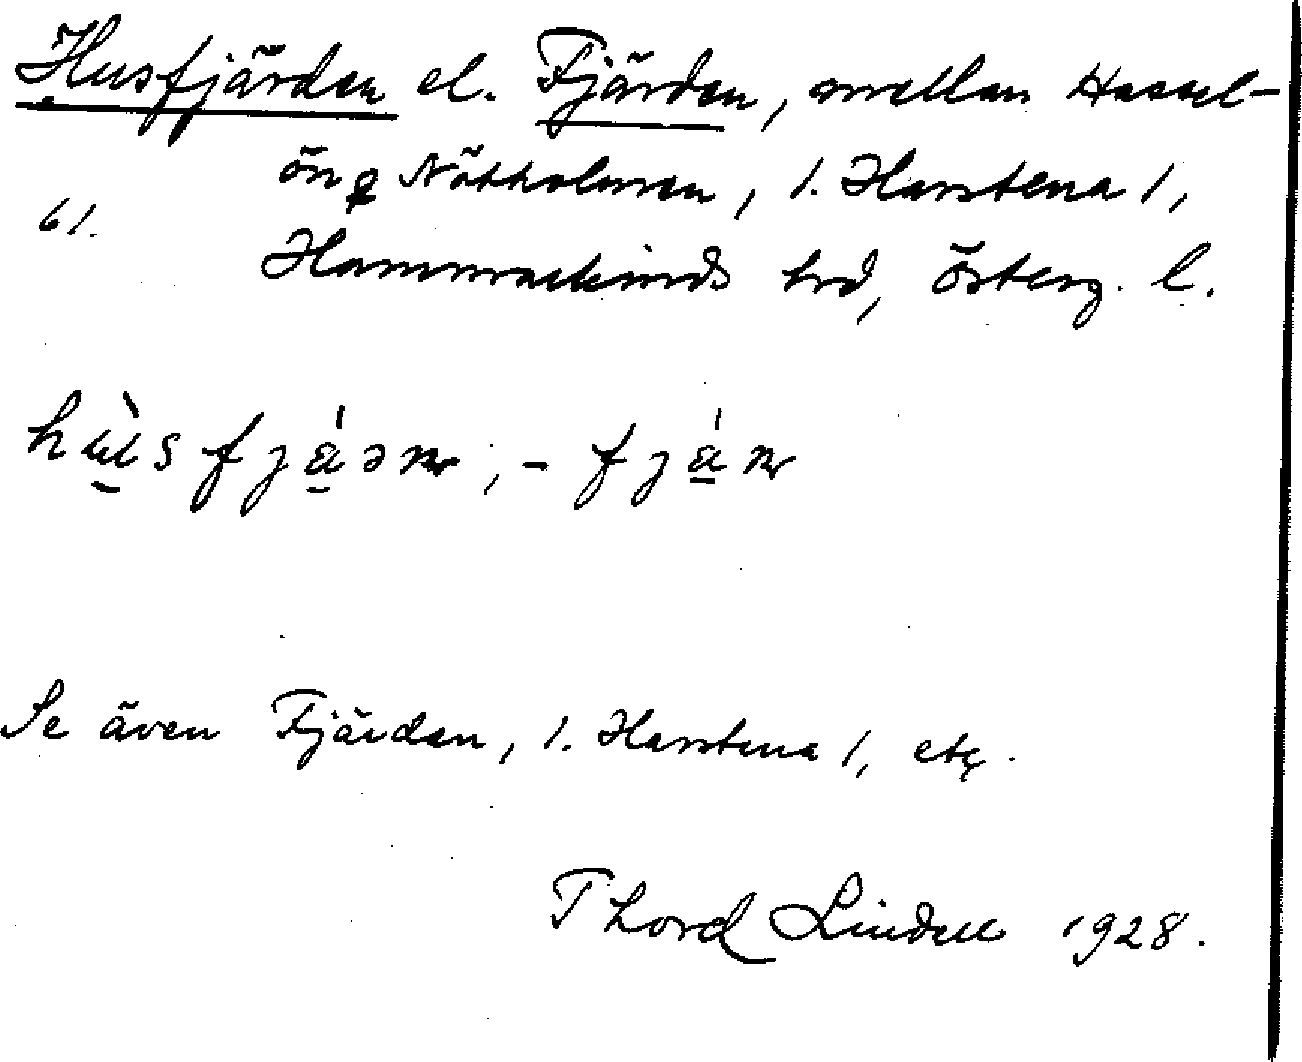 Husfjärden el. Fjärden, mellan Hassel-
ön o Nötholmen, 1. Harstena 1,
61.
Hammarkinds hrd, Österg. l.
Se även Fjärden, 1. Harstena 1, etc.
Thord Lindell 1928.